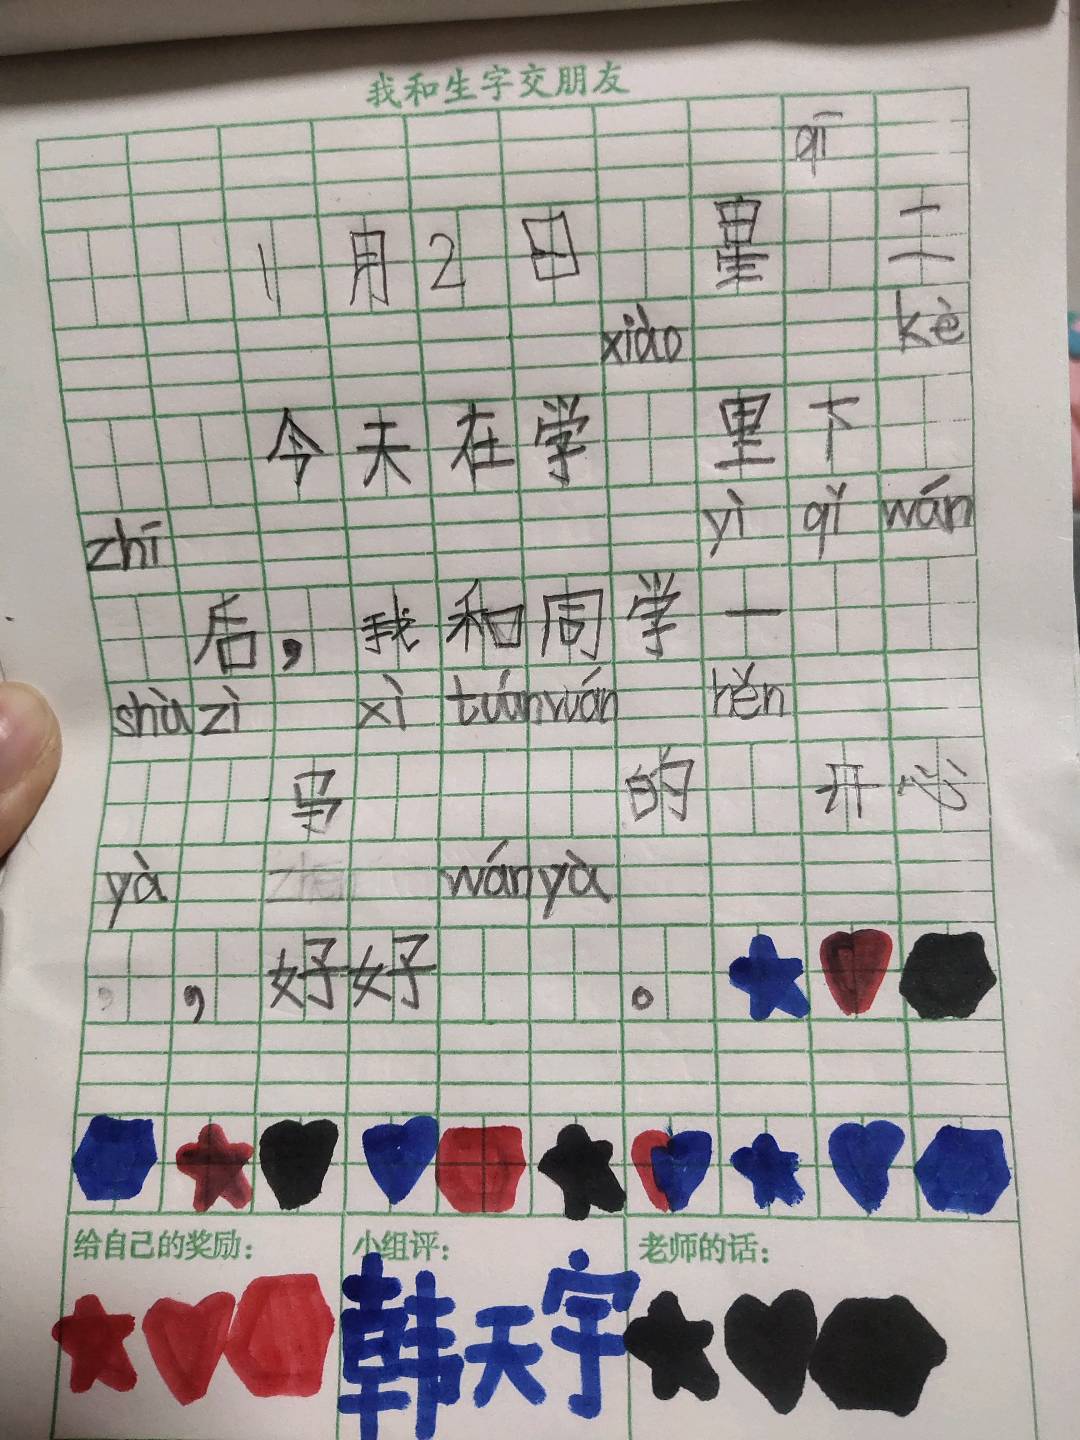 我和生字交朋友
qī
1月2日 星 三
xiào kè
今天在学 里下
zhī yì qǐ wán
后，我和同学一
shù zì xì tuányuán hěn
号 的 开心
yà wányà
，好好 。
给自己的奖励： 小组评： 老师的话：
韩天宇